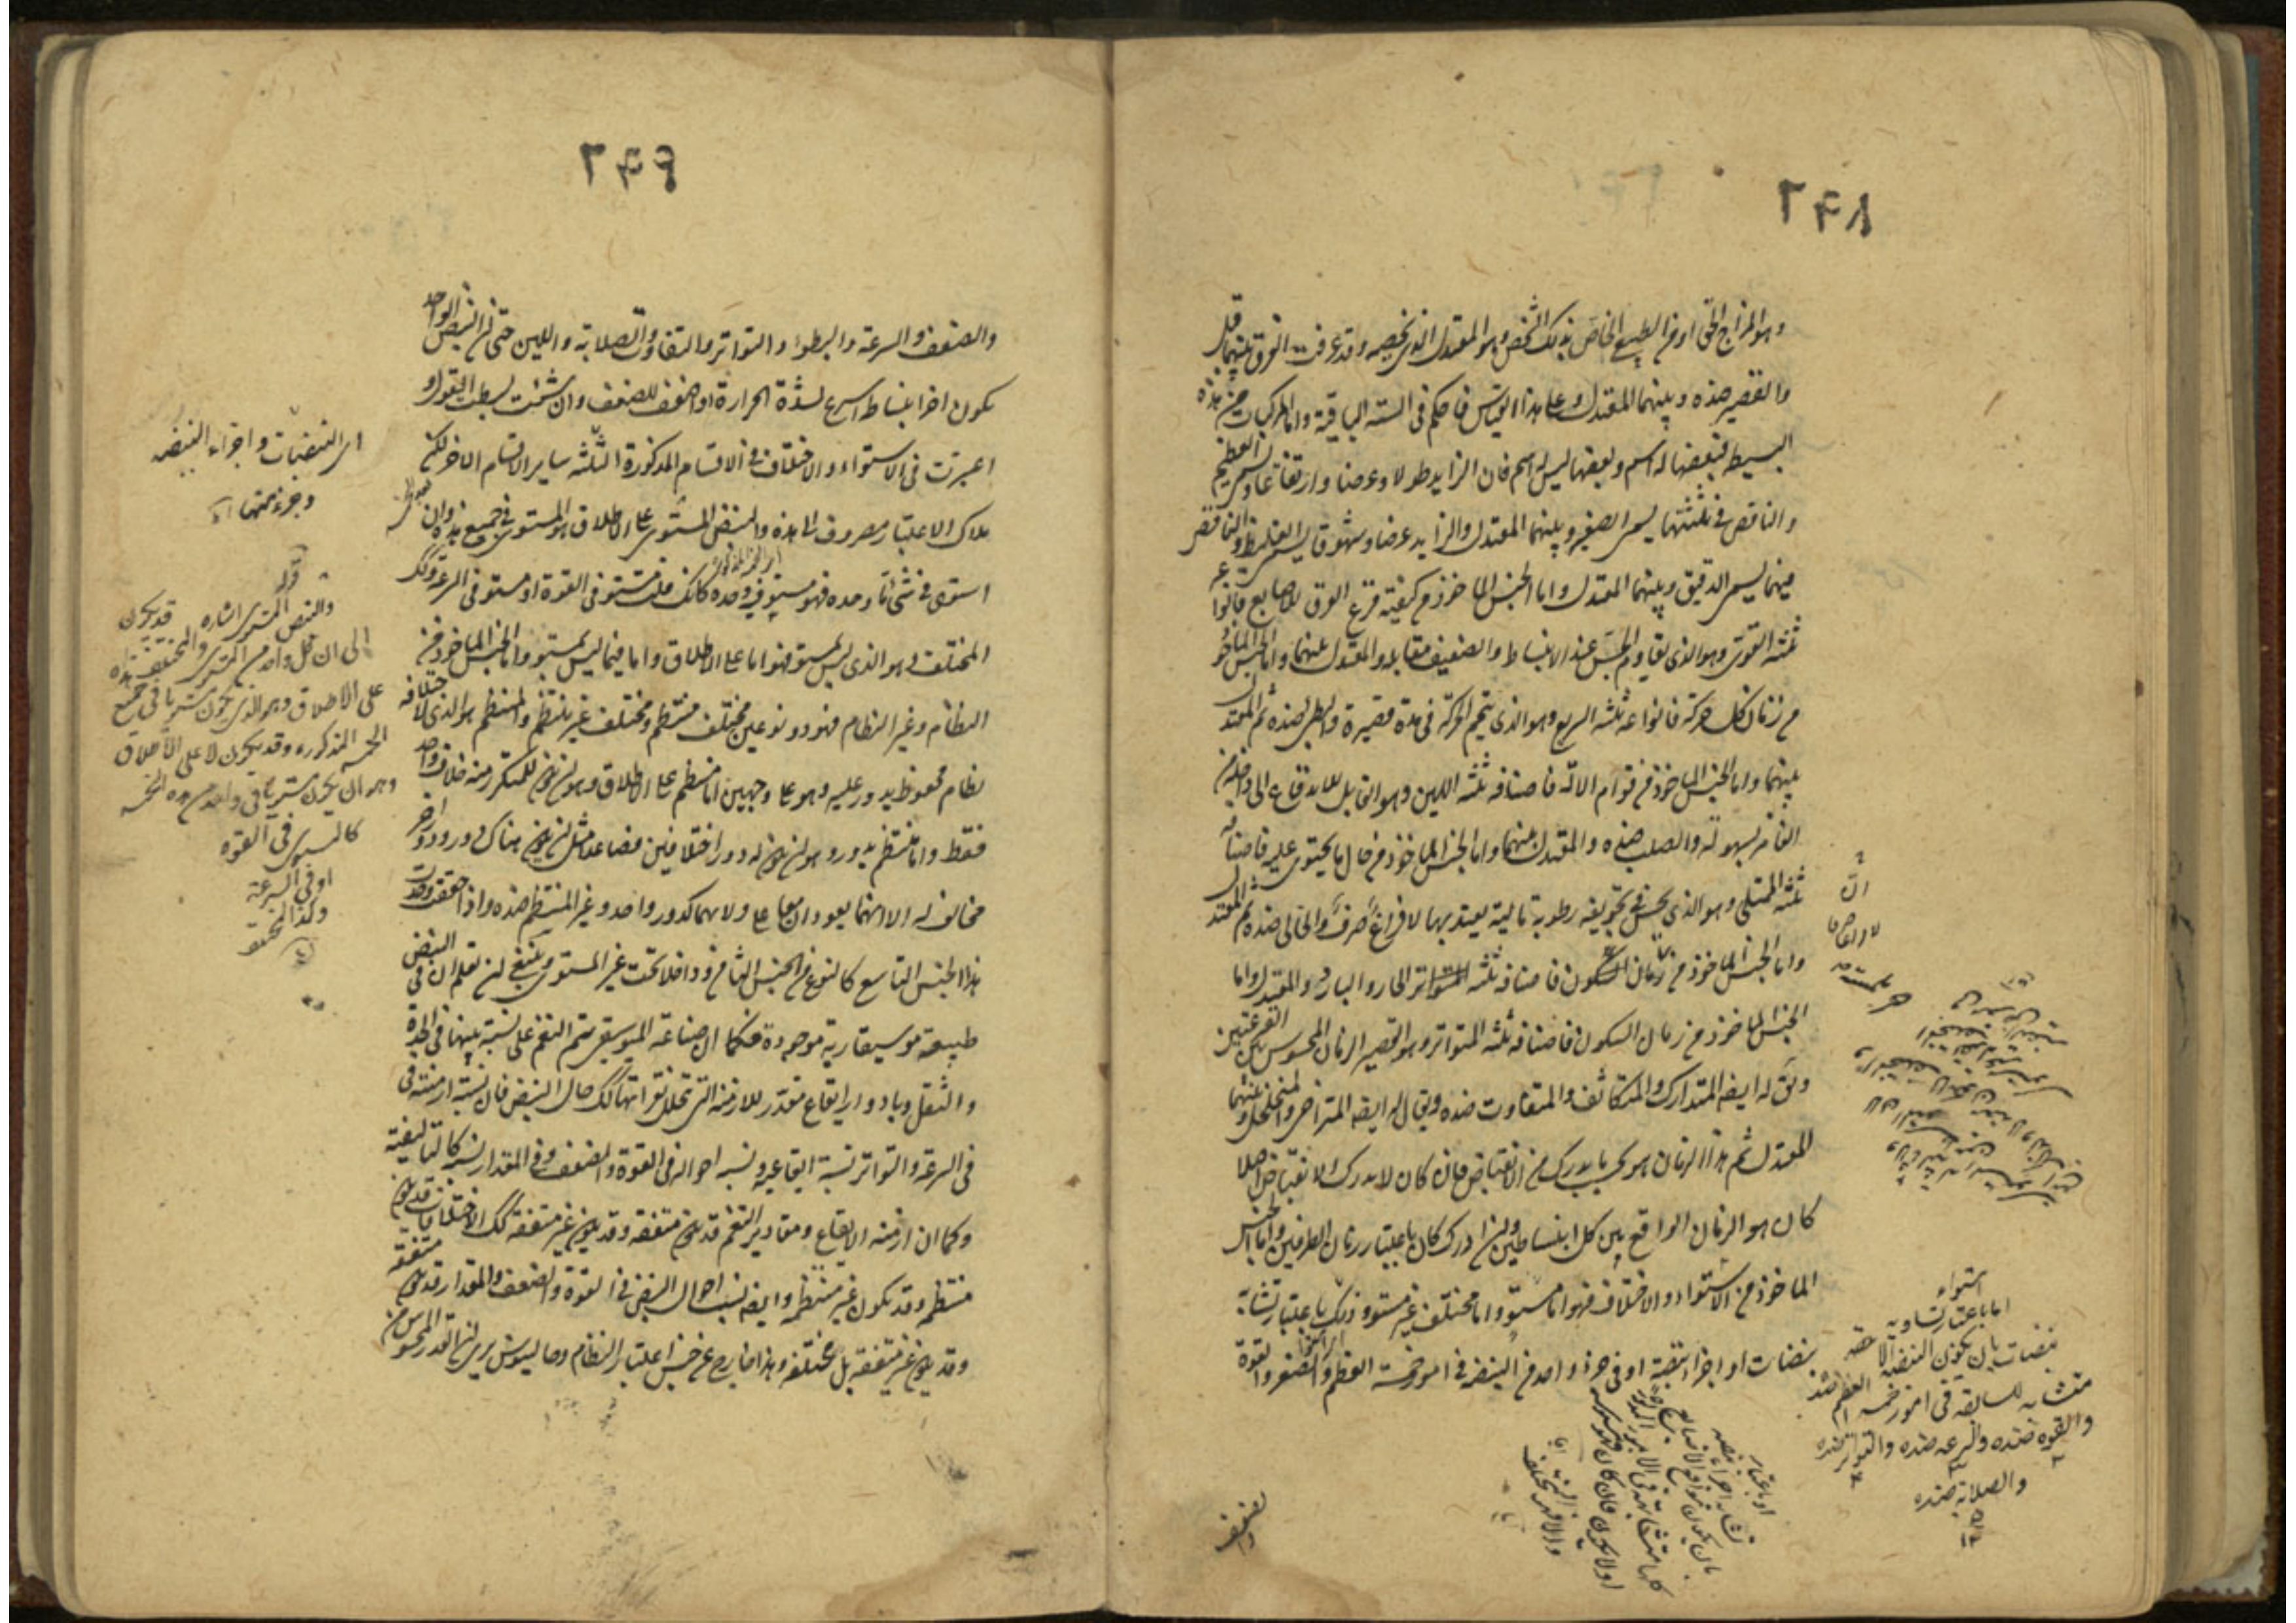 ٢٦٨
وهو المزاج الحق او من الطبيع الخاص بذلك الشخص وهو المعتدل الذى يخصه وقد عرفت الفرق بينهما قبل
والقصير ضده وبينهما المعتدل وعلى هذا القياس فاحكم فى الستة الباقية واما المركبات من هذه
البسيطة فبعضها له اسم وبعضها ليس له اسم فان الزايد طولا وعرضا وارتفاعا يسمى العظيم
والناقص فى ثلثتها يسمى الصغير وبينهما المعتدل والزايد عرضا وشهوقا يسمى الغليظ والناقص
فيهما يسمى الدقيق وبينهما المعتدل واما الجنس الماخوذ من كيفية قرع العرق للاصابع فانواعه
ثلثة القوى وهو الذى يقاوم الجس عند الانبساط والضعيف مقابله والمعتدل بينهما واما الجنس الماخوذ
من زمان كل حركة فانواعه ثلثة السريع وهو الذى يتمم الحركة فى مدة قصيرة والبطى ضده ثم المعتدل
بينهما واما الجنس الماخوذ من قوام الالة فاصنافه ثلثة اللين وهو القابل للاندفاع الى داخل من
الغامز بسهولة والصلب ضده والمعتدل بينهما واما الجنس الماخوذ من حال ما يحتوى عليه فاصنافه
ثلثة الممتلى وهو الذى يحس فى تجويفه رطوبة مالية يعتد بها لا فراغ صرف والخالى ضده ثم المعتدل
واما الجنس الماخوذ من زمان السكون فاصنافه ثلثة المتواتر الحار والبارد والمعتدل واما
الجنس الماخوذ من زمان السكون فاصنافه ثلثة المتواتر وهو القصير الزمان المحسوس بين القرعتين
ويق له ايضا المتدارك والمتكاثف والمتفاوت ضده ويقال له ايضا المتراخى والمتخلخل وبينهما
المعتدل ثم هذا الزمان هو بحسب ما يدرك من الانقباض فان كان لا يدرك الانقباض اصلا
كان هو الزمان الواقع بين كل انبساطين وان ادرك كان باعتبار زمان الطرفين واما الجنس
الماخوذ من الاستواء والاختلاف فهو اما مستو واما مختلف غير مستو وذلك باعتبار تشابه
نبضات او اجزاء نبضة او فى جزء واحد من النبضة فى امور خمسة العظم والصغر والقوة
والضعف
استواء
اما باعتبار تساويه
نبضات بان يكون النبضة الاحقة
متشابه للسابقة فى امور خمسه العظم ضده
والقوه ضده والسرعه ضده والتواتر ضده
والصلابة ضده
او باعتبار
تشابه اجزاء نبضه
٢٦٩
والضعف والسرعة والبطوء والتواتر والتفاوت والصلابة واللين حتى ان النبض الواحد
يكون اخر انبساطه اسرع لشدة الحرارة او اضعف للضعف وان شئت بسطت القول و
اعتبرت فى الاستواء والاختلاف فى الاقسام المذكورة الثلثة ساير الاقسام الاخر لكن
ملاك الاعتبار مصروف الى هذه والنبض المستوى على الاطلاق هو المستوى فى جميع هذه وان
استوى فى شئ منها وحده فهو مستو فيه وحده كانك قلت مستو فى القوة او مستو فى السرعة وكذلك
المختلف وهو الذى ليس بمستو فهو اما على الاطلاق واما فيما ليس بمستو واما الجنس الماخوذ من
النظام وغير النظام فهو ذو نوعين مختلف منتظم ومختلف غير منتظم والمنتظم هو الذى لاختلافه
نظام محفوظ يدور عليه وهو على وجهين اما منتظم على الاطلاق وهو ان يكون للمتكرر منه خلاف واحد
فقط واما منتظم بدور وهو ان يكون له دور اختلافين فصاعدا مثل ان يكون هناك دور ودور اخر
مخالف له الا انهما يعودان معا على ولاهما كدور واحد وغير المنتظم ضده واذا حققت وجدت
هذا الجنس التاسع كالنوع من الجنس الثامن وداخلا تحت غير المستوى وينبغى ان تعلم ان فى النبض
طبيعة موسيقارية موجودة فكما ان صناعة الموسيقى يتم النغم على نسبة بينها فى الحدة
والثقل وبادوار ايقاع مقدر للازمنة التى تتخلل نقراتها كذلك حال النبض فان نسبة ازمنته فى
فى السرعة والتواتر نسبة ايقاعية ونسبة احواله فى القوة والضعف وفى المقدار نسبة كالتاليفية
وكما ان ازمنة الايقاع ومقادير النغم قد يكون متفقة وقد يكون غير متفقة كذلك الاختلافات قد يكون
منتظمة وقد تكون غير منتظمة وايضا نسب احوال النبض فى القوة والضعف والمقدار قد يكون متفقة
وقد يكون غير متفقة بل مختلفة وهذا خارج عن جنس اعتبار النظام وجالينوس يرى ان القدر المحسوس من
اى النبضات واجزاء النبضه
وجزء منها
قوله
والنبض المستوى اشاره
الى ان كل واحد من المستوى والمختلف قد يكون
على الاطلاق وهو الذى يكون مستويا فى جميع هذه
الخمسه المذكوره وقد يكون لا على الاطلاق
وهو ان يكون مستويا فى واحد من هذه الخمسه
كالمستوى فى القوه
او فى السرعة
وكذا المختلف